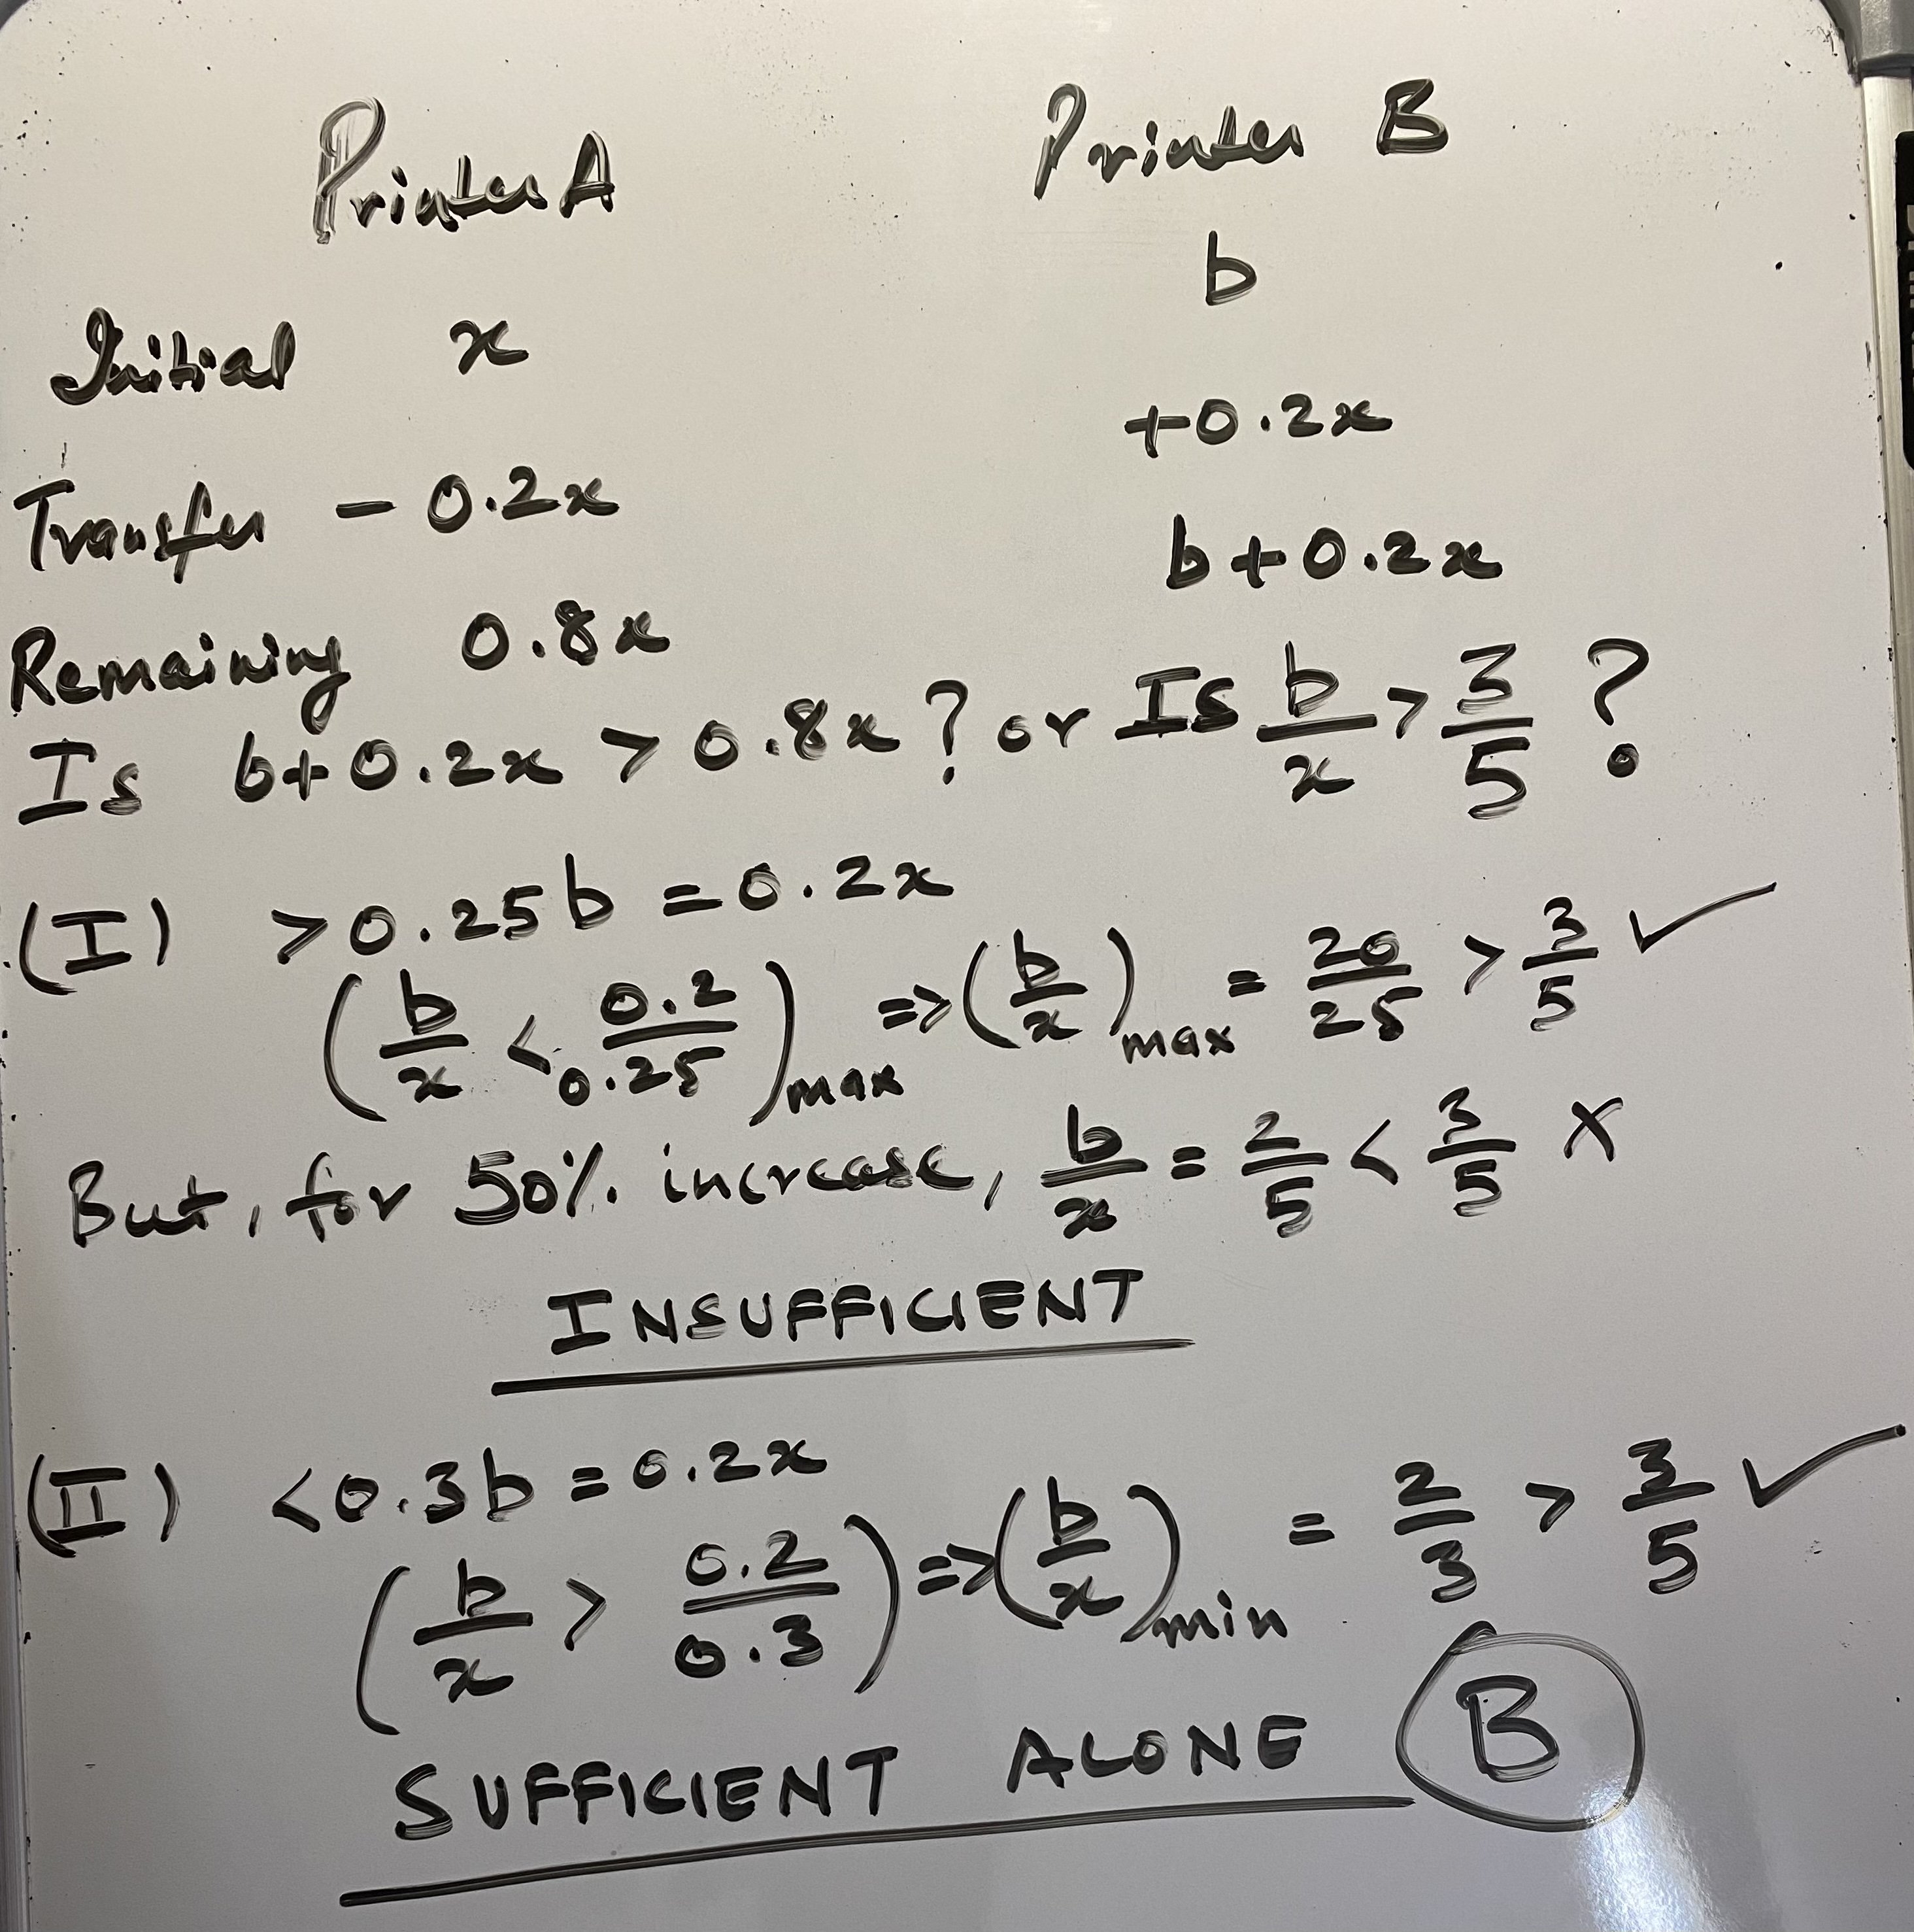 Printer A Printer B
Initial x b
Transfer - 0.2x +0.2x
Remaining 0.8x b+0.2x
Is b+0.2x > 0.8x ? or Is b/x > 3/5 ?
(I) >0.25b = 0.2x
(b/x < 0.2/0.25)max => (b/x)max = 20/25 > 3/5 ✓
But, for 50% increase, b/x = 2/5 < 3/5 X
INSUFFICIENT
(II) <0.3b = 0.2x
(b/x > 0.2/0.3) => (b/x)min = 2/3 > 3/5 ✓
SUFFICIENT ALONE B